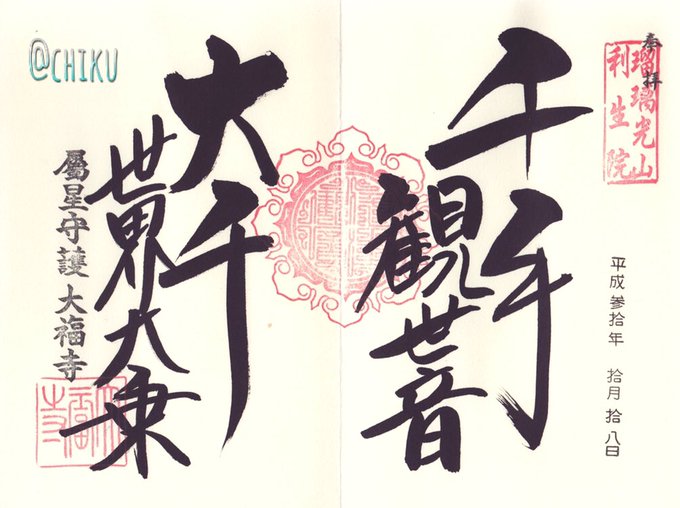 @CHIKU
奉拝
瑠璃光山
利生院
平成参拾年 拾月 拾八日
千手
観世音
大千
世界大乗
屬星守護 大福寺
大福寺